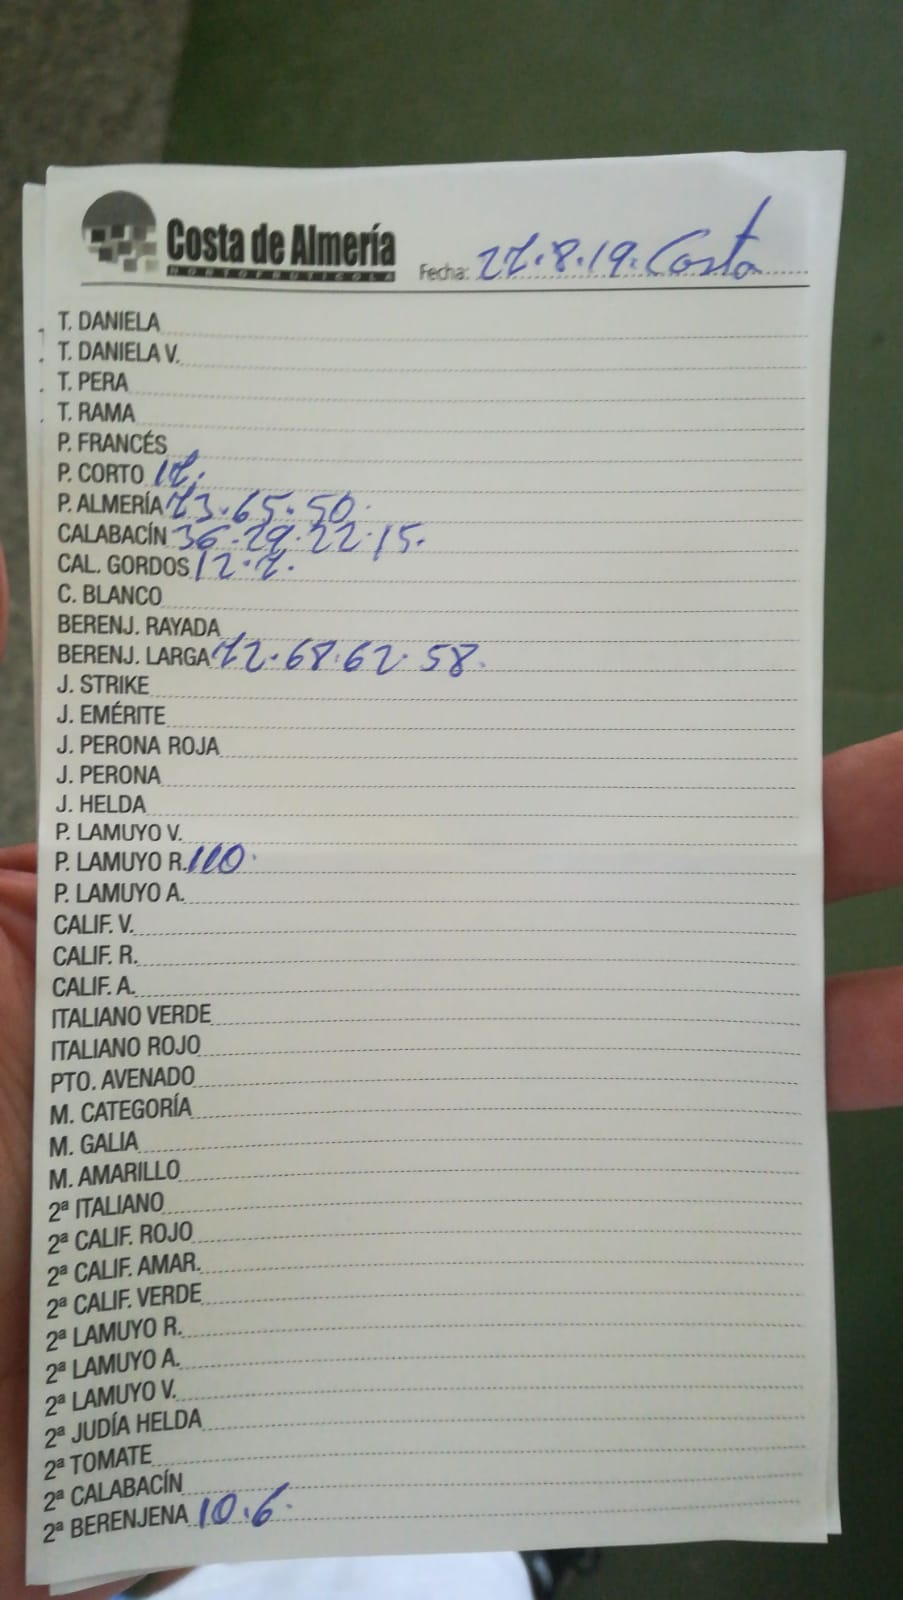 Costa de Almería
HORTOFRUTÍCOLA
Fecha: 27.8.19. Costa
T. DANIELA
T. DANIELA V.
T. PERA
T. RAMA
P. FRANCÉS
P. CORTO 17.
P. ALMERÍA 73.65.50.
CALABACÍN 36.29.22.15.
CAL. GORDOS 12.7.
C. BLANCO
BERENJ. RAYADA
BERENJ. LARGA 72.68.62.58.
J. STRIKE
J. EMÉRITE
J. PERONA ROJA
J. PERONA
J. HELDA
P. LAMUYO V.
P. LAMUYO R. 110.
P. LAMUYO A.
CALIF. V.
CALIF. R.
CALIF. A.
ITALIANO VERDE
ITALIANO ROJO
PTO. AVENADO
M. CATEGORÍA
M. GALIA
M. AMARILLO
2ª ITALIANO
2ª CALIF. ROJO
2ª CALIF. AMAR.
2ª CALIF. VERDE
2ª LAMUYO R.
2ª LAMUYO A.
2ª LAMUYO V.
2ª JUDÍA HELDA
2ª TOMATE
2ª CALABACÍN
2ª BERENJENA 10.6.